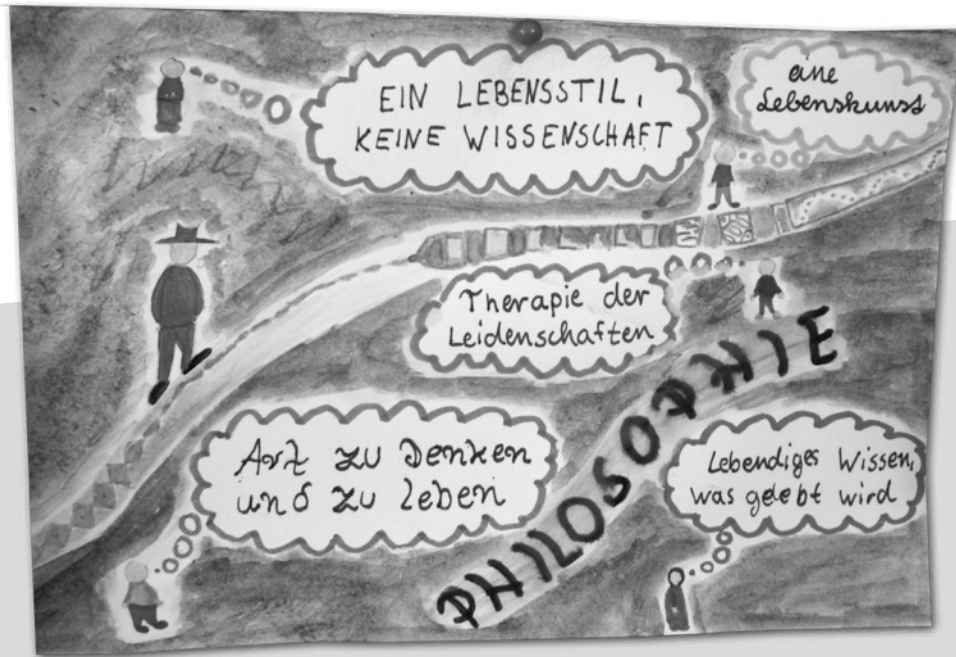 EIN LEBENSSTIL,
KEINE WISSENSCHAFT
eine
Lebenskunst
Therapie der
Leidenschaften
PHILOSOPHIE
Art zu Denken
und zu leben
Lebendiges Wissen,
was gelebt wird